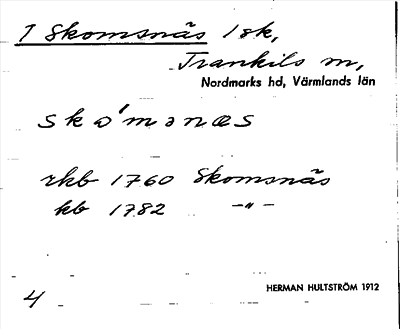 1 Skomsnäs 1 sk,
Trankils sn,
Nordmarks hd, Värmlands län
skə'mənæs
rkb 1760 Skomsnäs
kb 1782 –"–
HERMAN HULTSTRÖM 1912
4